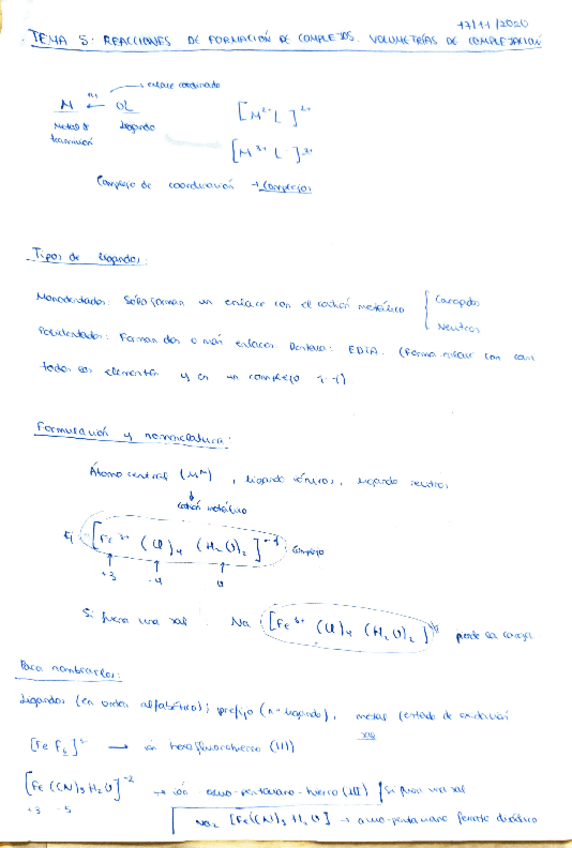 17/11/2020
TEMA 5: REACCIONES DE FORMACIÓN DE COMPLEJOS. VOLUMETRÍAS DE COMPLEJACIÓN
→ enlace coordinado
M ← :L
Metal de transición
Ligando
[M²⁺ L]²⁺
[M³⁺ L⁻]²⁺
Complejo de coordinación → Complejos
Tipos de ligandos:
Monodentados: Sólo forman un enlace con el catión metálico { Cargados
Neutros
Polidentados: Forman dos o más enlaces. EDTA. (Forma enlace con casi
todos los elementos y en un complejo 1:1)
Formulación y nomenclatura:
Átomo central (Mⁿ⁺), ligando iónicos, ligando neutros
↓
catión metálico
Ej [Fe³⁺ (Cl)₄ (H₂O)₂]⁻¹ complejo
+3 -4 0
Si fuera una sal: Na [Fe³⁺ (Cl)₄ (H₂O)₂] pierde la carga
Para nombrarlos:
Ligandos (en orden alfabético); prefijo (n-ligando), metal (estado de oxidación
[Fe F₆]³⁻ → ión hexafluorohierro (III)
[Fe(CN)₅H₂O]⁻² → ión acuo-pentaciano-hierro (III) Si fuera una sal
+3 -5
Na₂ [Fe(CN)₅H₂O] → acuo-pentaciano ferrato disódico